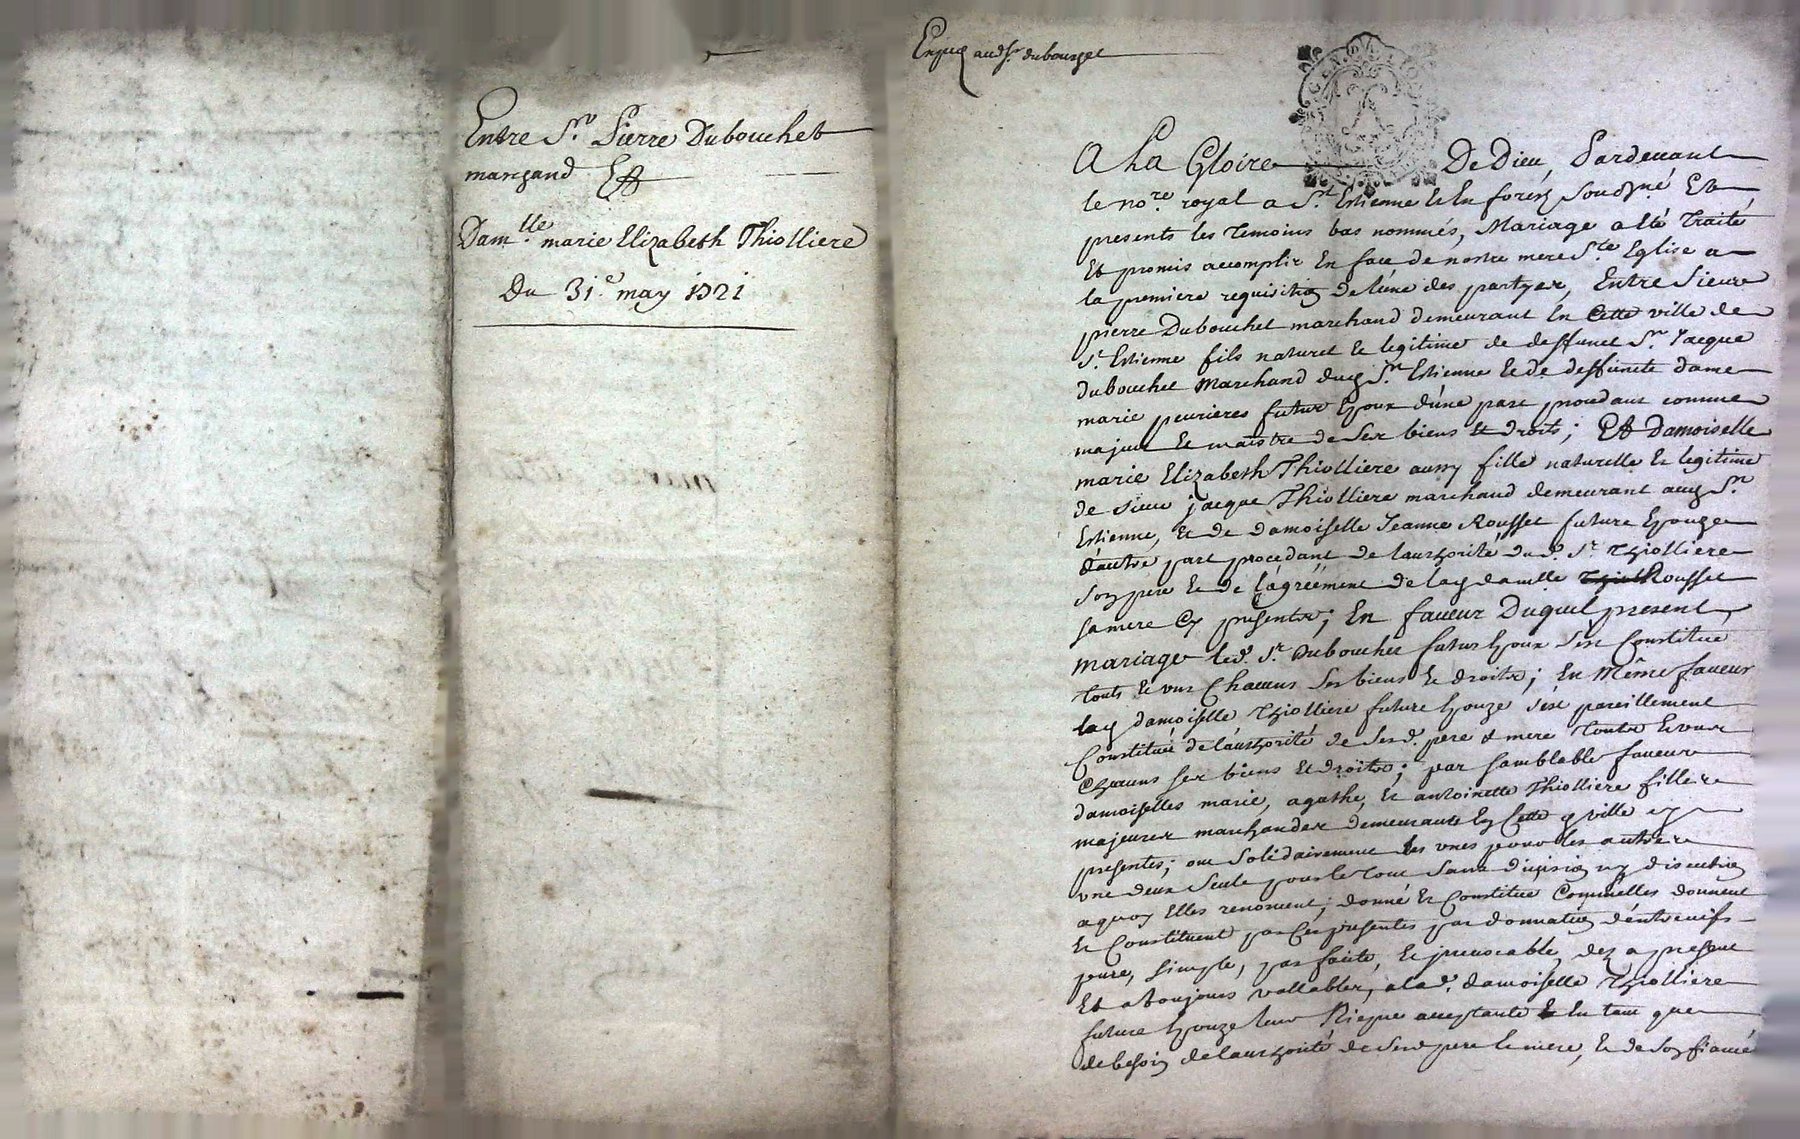 Entre Sr. Pierre Dubouchet
marchand Et
Damlle. marie Elizabeth Thiolliere
Du 31e. may 1721
A La Gloire De Dieu, Pardevant
le nore. royal a St. Estienne En forés soussigné Et
presents les temoins bas nommés, Mariage a êté Traité
Et promis accomplir En face de nostre mere Ste Eglise a
la premiere requisition de l'une des partyes, Entre Sieur
pierre Dubouchet marchand demeurant En Cette ville de
St. Estienne fils naturel et legitime de deffunct Sr. Jacque
dubouchet Marchand dud Sn. Estienne et de deffuncte dame
marie peurieres futur Epoux d'une part procedant comme
majeur et maistre de ses biens et droits; Et Damoiselle
marie Elizabeth Thiolliere aussy fille naturelle et legitime
de sieur jacque Thiolliere marchand demeurant aud Sn.
Estienne, et de damoiselle Jeanne Rousset future Epouze
d'autre part procedant de lauthorité dud. Sr. Thiolliere
son pere et de l'agréement de lad damlle Rousset
sa mere Cy presents; En faveur Duquel present
mariage led. Sr. Dubouchet futur Epoux s'est Constitué
touts et uns Chacuns ses biens et droits; En Même faveur
lad damoiselle Thiolliere future Epouze s'est pareillement
Constituée de l'authorité de sesd. pere et mere touts et uns
Chacuns ses biens et droits; par semblable faveur
damoiselles marie, agathe, et antoinette Thiolliere filles
majeures marchandes demeurants En Cette ville cy
presentes; ont solidairement les unes pour les autres
une deux seule pour le tout sans division ny discution
a quoy Elles renoncent, donné et Constitué Comm'elles donnent
et Constituent par Ces presentes par donnation d'entre vifs
pure, simple, parfaite, et irrevocable, dez a present
Et a toujours vallable, a lad. damoiselle Thiolliere
future Epouze leur Niepce acceptante En tant que
de besoin de lauthorité de sesd pere et mere, et de son fiancé